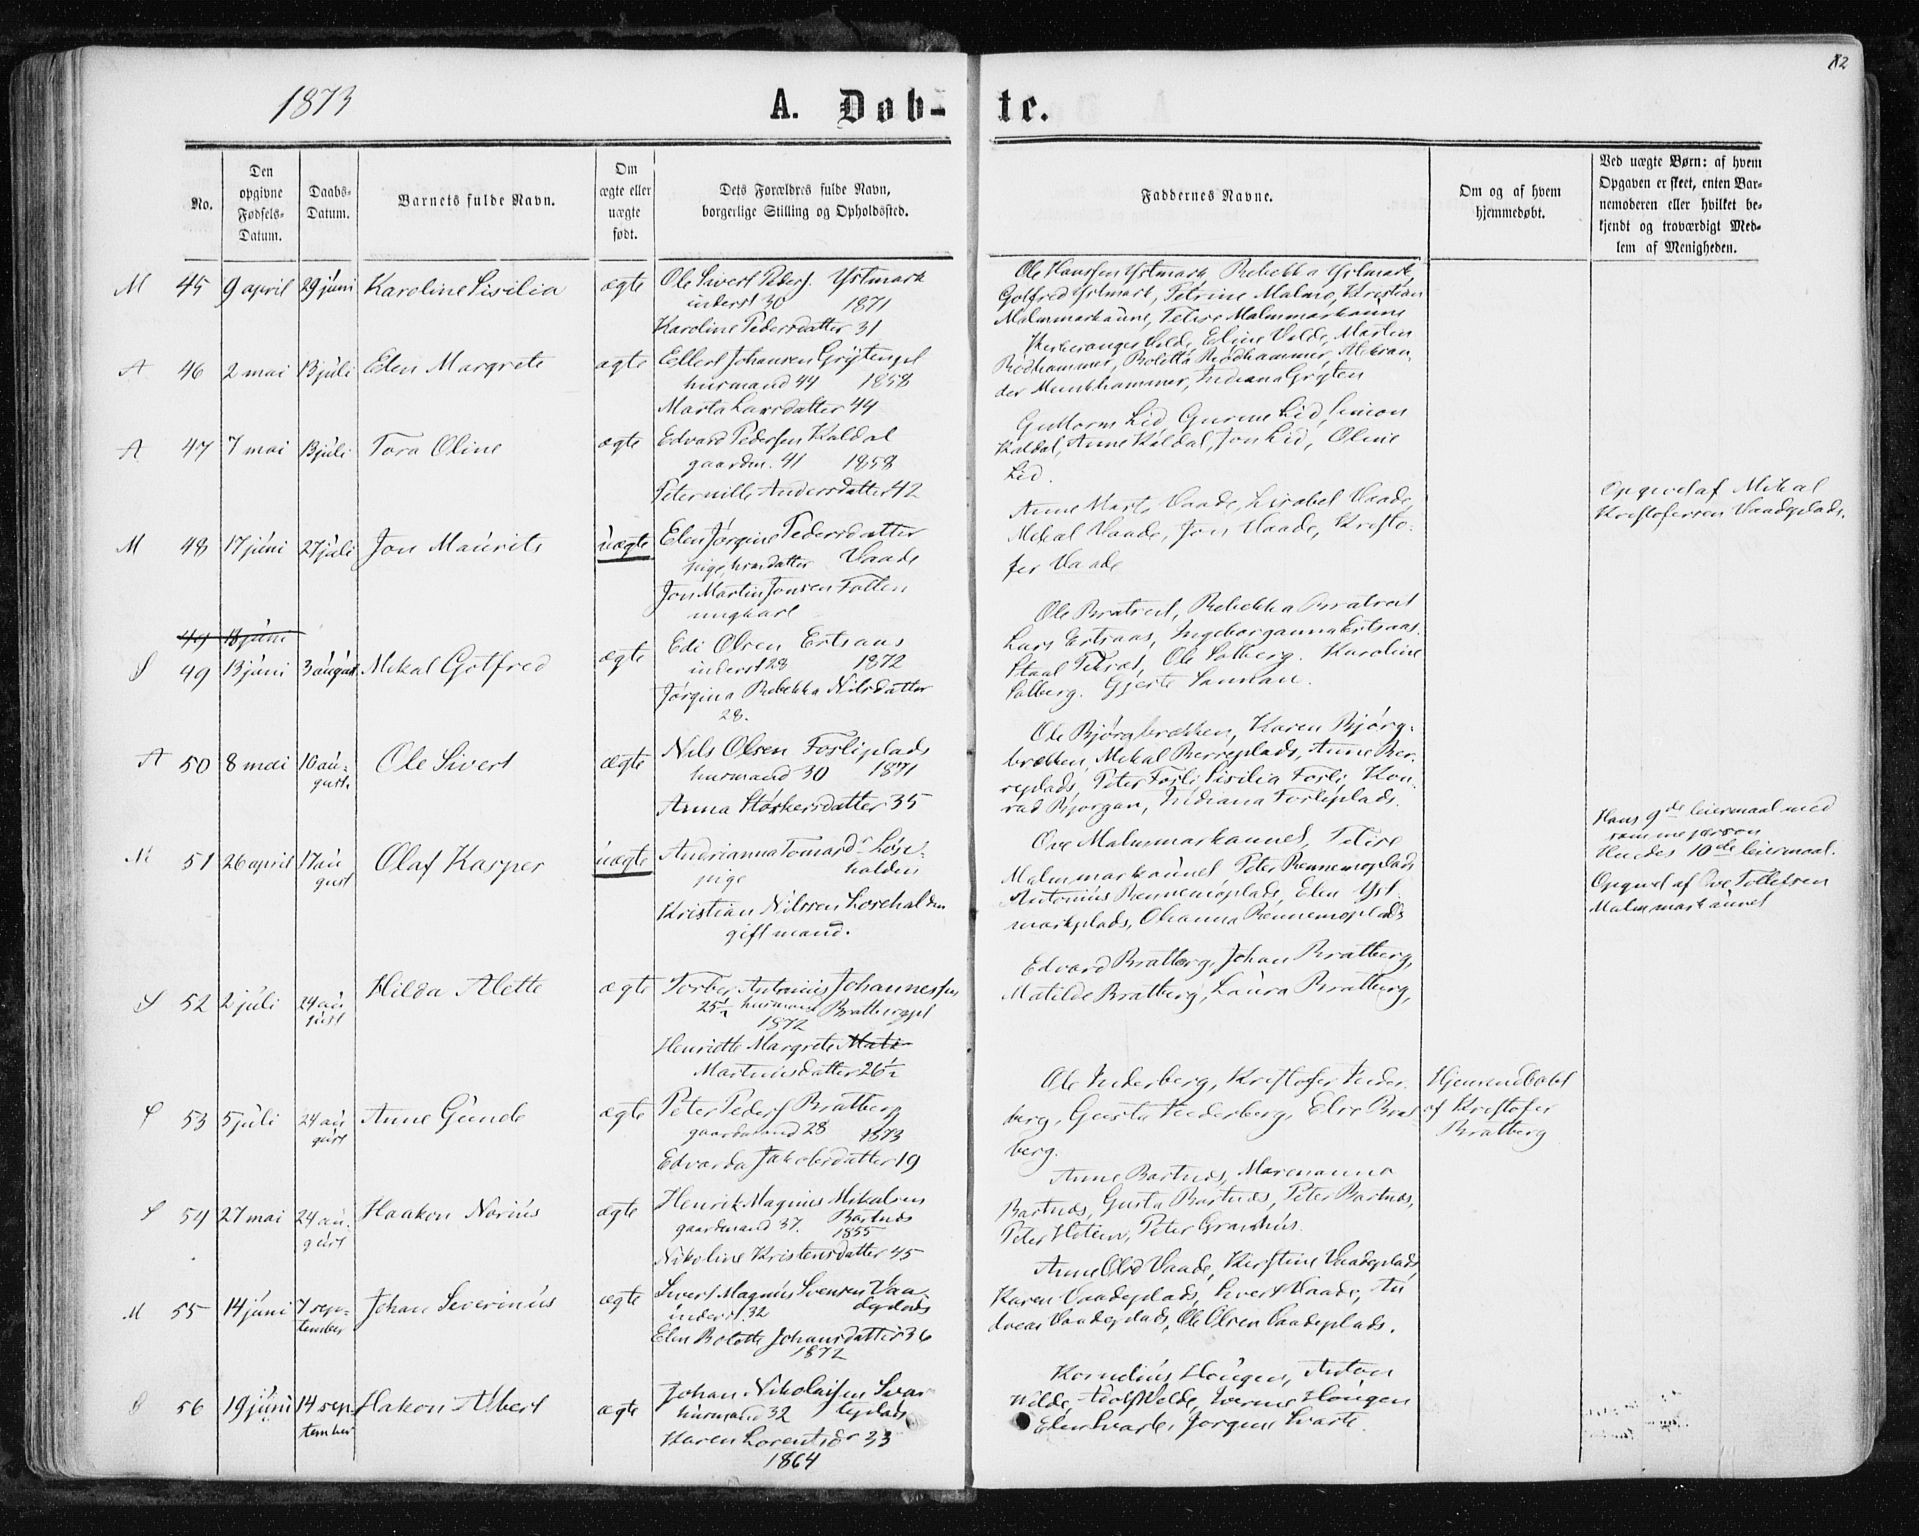 1873
A. Døb-
te.
12
No.
Den
opgivne
Fødsels-
Datum.
Daabs-
Datum.
Barnets fulde Navn.
Om
ægte eller
uægte
født.
Dets Forældres fulde Navn,
borgerlige Stilling og Opholdssted.
Faddernes Navne.
Om og af hvem
hjemmedøbt.
Ved uægte Børn: af hvem
Opgaven er skeet, enten Bar-
nemoderen eller hvilket be-
kjendt og troværdigt Med-
lem af Menigheden.
M 45 9 april 29 juni Karoline Sisilia ægte
Ole Sivert Peders. Ystmark
inderst 30 1871
Karoline Pedersdatter 31
Ole Hanssen Ystmark Rebekka Ystmark,
Gotfred Ystmark, Petrine Malmo, Kristian
Malmmarkaune, Petrse Malmmarkaune
A 46 2 mai 13 juli Elen Margrete ægte
Ellert Johansen Grytenpl
husmand 44 1858
Marta Larsdatter 44
Velde, Eline Velde, Morten
Rødhammer, Boletta Rødhammer, Aleksan-
der Munkhammer, Indiana Gryten
A 47 7 mai 13 juli Tora Oline ægte
Edvard Pedersen Kaldal
gaardm. 41 1858
Peternille Andersdatter 42
Guttorm Lid, Gurine Lid, Simon
Kaldal, Anne Kaldal, Jon Lid, Oline
Lid.
M 48 17 juni 27 juli Jon Maurits uægte
Elen Jørgine Pedersdatter
pige, husdatter Vaade
Jon Martin Jonsen Folten
ungkarl
Anne Marta Vaade, Lisabet Vaade,
Mikal Vaade, Jon Vaade, Kristo-
fer Vaade
Opgivet af Mikal
Kristofersen Vaadeplads.
49 13 juni
S 49 13 juni 3 august Mikal Gotfred ægte
Edi Olsen Ertsaas
inderst 28 1872
Jørgina Rebekka Nilsdatter
28.
Ole Bratreit, Rebekka Bratreit
Lars Ertsaas, Ingeborganna Ertsaas.
Staal Ole Solberg. Karoline
Solberg. Gjerte Sannan.
A 50 8 mai 10 au-
gust. Ole Sivert ægte
Nils Olsen Forsliplads
husmand 30 1871
Anna Størkersdatter 35
Ole Bjørgbrækken, Karen Bjørg-
brækken, Mikal Berreplads, Anne Ber-
replads, Peter Forsli, Sisilia Forsli, Kon-
rad Bjørgan, Indiana Forsliplads.
M 51 26 april 17 au-
gust Olaf Kasper uægte
Andrianna Tomasdr Lose-
pige halden
Kristian Nilssen Losehalden
gift mand.
Ove Malmmarkaunet, Petrse
Malmmarkaunet, Peter Rennemoplads
Antonius Rennemoplads, Elen Yst-
markplads, Ohanna Rennemoplads
Hans 9de leiermaal med
samme person
Hendes 10de leiermaal.
Opgivet af Ove Tollefsen
Malmmarkaunet
S 52 2 juli 24 au-
gust Hilda Alette ægte
Torber Antonius Johannessen
25½ husmand Bratbergpl
1872
Henriette Margrete
Martinusdatter 26½
Edvard Bratberg, Johan Bratberg,
Matilde Bratberg, Laura Bratberg,
S 53 5 juli 24 au-
gust Anne Gunde ægte
Peter Peders Bratberg
gaardmand 28 1873
Edvarda Jakobsdatter 19
Ole Vederberg, Kristofer Veder-
berg, Gusta Vederberg, Else Brat-
berg.
Hjemmedøbt
af Kristofer
Bratberg
S 54 27 mai 24 au-
gust Haakon Norius ægte
Henrik Magnus Mikalsen
gaardmand 37. Bartnes
1855
Nikoline Kristensdatter 45
Anne Bartnes, Marenanna
Bartnes, Gusta Bartnes, Peter Bartnes,
Peter Holein, Peter Granhus.
M 55 14 juni 7 sep-
tember Johan Severinus ægte
Sivert Magnus Svensen Vaa-
inderst 32 deplads
Elen Bolette Johansdatter 36
1872
Anne Olea Vaade, Kirstine Vaadeplads,
Karen Vaadeplads, Sivert Vaade, An-
dreas Vaadeplads, Ole Olsen Vaadeplads.
S 56 19 juni 14 sep-
tember Hakon Albert ægte
Johan Nikolaisen Svar-
husmand 32 teplads
Karen Lorentsdr 33
1864
Kornelius Hougen, Anton
Velde, Adolf Velde, Iverine Hougen
Elen Svarte, Jørgine Svarte.